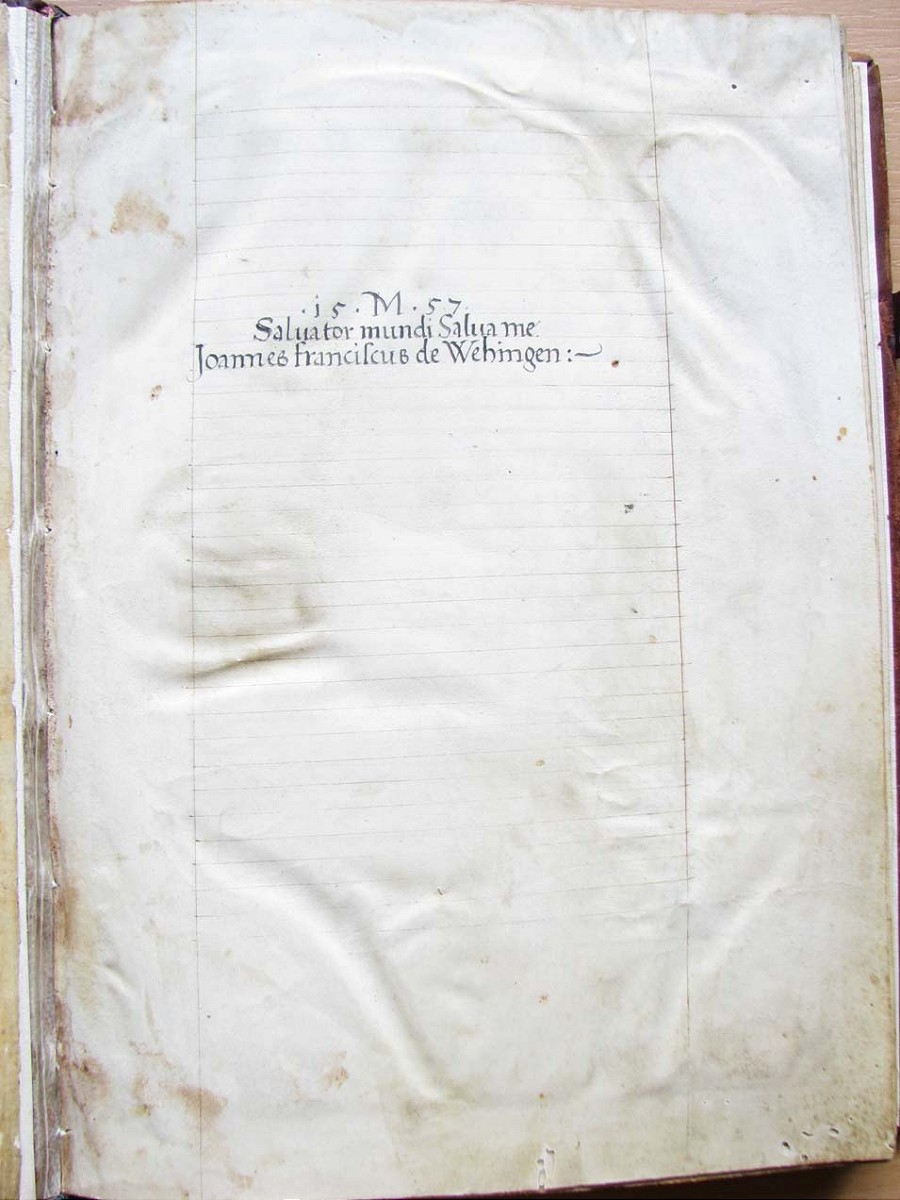 · 1 5 · M · 5 7 ·
Saluator mundi Salua me
Joannes franciſcus de Wehingen :~